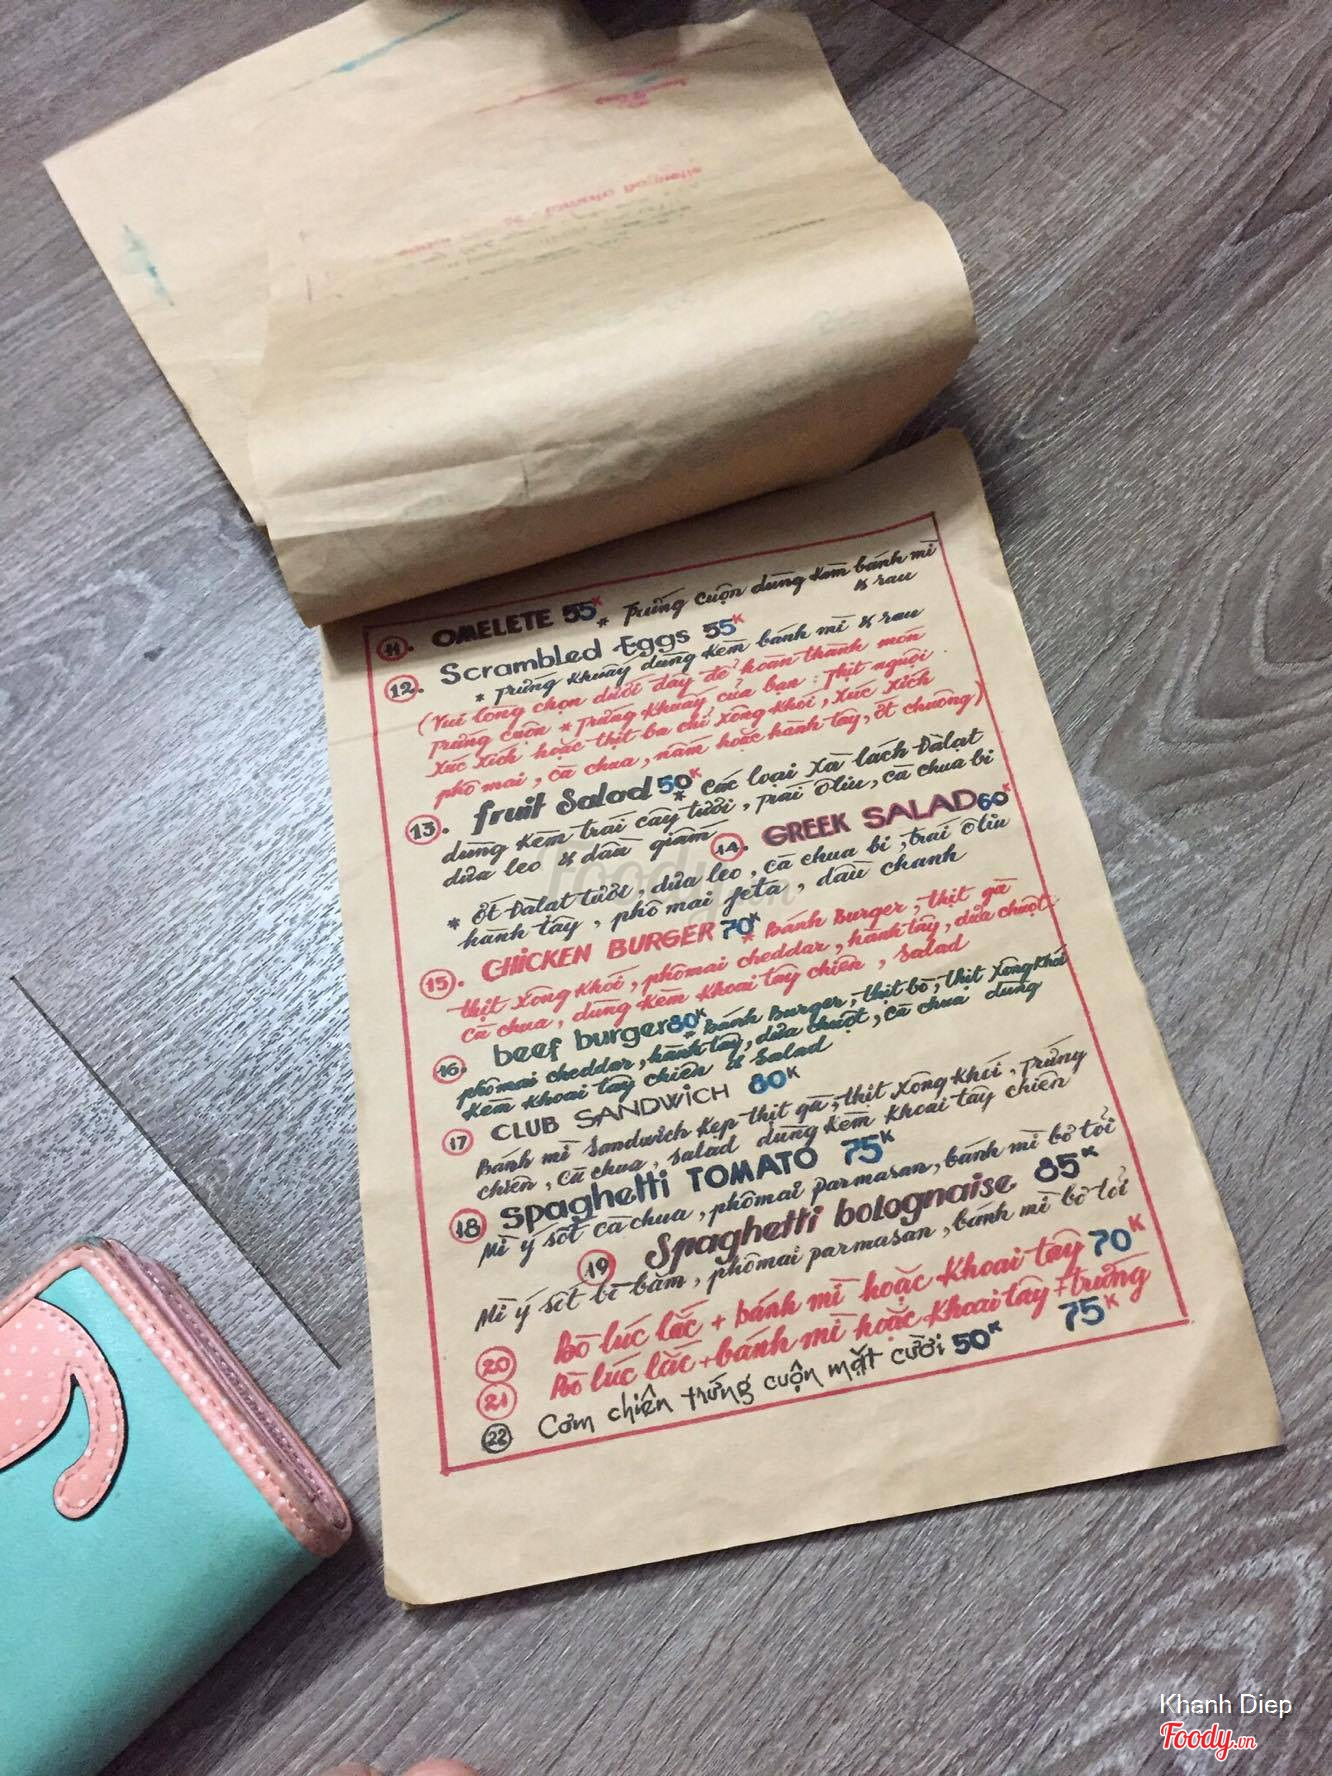 11. OMELETE 55K * Trứng cuộn dùng kèm bánh mì
& rau
12. Scrambled Eggs 55K
* Trứng khuấy dùng kèm bánh mì & rau
(Vui lòng chọn dưới đây để hoàn thành món
trứng cuộn * Trứng khuấy của bạn: Thịt nguội
xúc xích hoặc thịt ba chỉ xông khói, xúc xích
phô mai, cà chua, nấm hoặc hành tây, ớt chuông)
13. fruit Salad 50K * các loại xà lách Đàlạt
dùng kèm trái cây tươi, trái oliu, cà chua bi
dưa leo & dầu giấm
14. GREEK SALAD 60K
* ớt Đàlạt tươi, dưa leo, cà chua bi, trái oliu
hành tây, phô mai feta, dầu chanh
15. CHICKEN BURGER 70K * Bánh Burger, thịt gà
thịt xông khói, phômai cheddar, hành tây, dưa chuột
cà chua, dùng kèm khoai tây chiên, salad
16. beef burger 80K * Bánh Burger, thịt bò, thịt xông khói
phômai cheddar, hành tây, dưa chuột, cà chua dùng
kèm khoai tây chiên & salad
17 CLUB SANDWICH 80K
Bánh mì sandwich kẹp thịt gà, thịt xông khói, trứng
chiên, cà chua, salad dùng kèm khoai tây chiên
18 spaghetti TOMATO 75K
Mì ý sốt cà chua, phômai parmasan, bánh mì bơ tỏi
19 Spaghetti bolognaise 85K
Mì ý sốt bò bằm, phômai parmasan, bánh mì bơ tỏi
20 Bò lúc lắc + bánh mì hoặc khoai tây 70K
21 Bò lúc lắc + bánh mì hoặc khoai tây + trứng
75K
22 Cơm chiên trứng cuộn mặt cười 50K
Foody.vn
Khanh Diep
Foody.vn